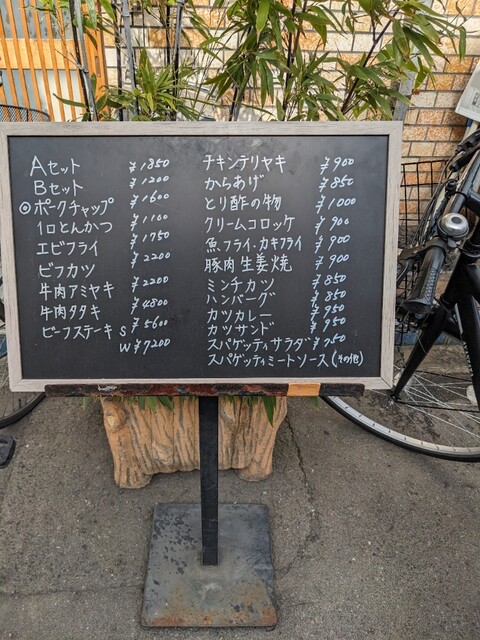 Aセット ¥1850
Bセット ¥1200
◎ポークチャップ ¥1600
1口とんかつ ¥1100
エビフライ ¥1750
ビフカツ ¥2200
牛肉アミヤキ ¥2200
牛肉タタキ ¥4800
ビーフステーキ S ¥5600
W ¥7200
チキンテリヤキ ¥900
からあげ ¥850
とり酢の物 ¥1000
クリームコロッケ ¥900
魚フライ・カキフライ ¥900
豚肉生姜焼 ¥900
ミンチカツ ¥850
ハンバーグ ¥850
カツカレー ¥950
カツサンド ¥950
スパゲッティサラダ
スパゲッティミートソース(その他)